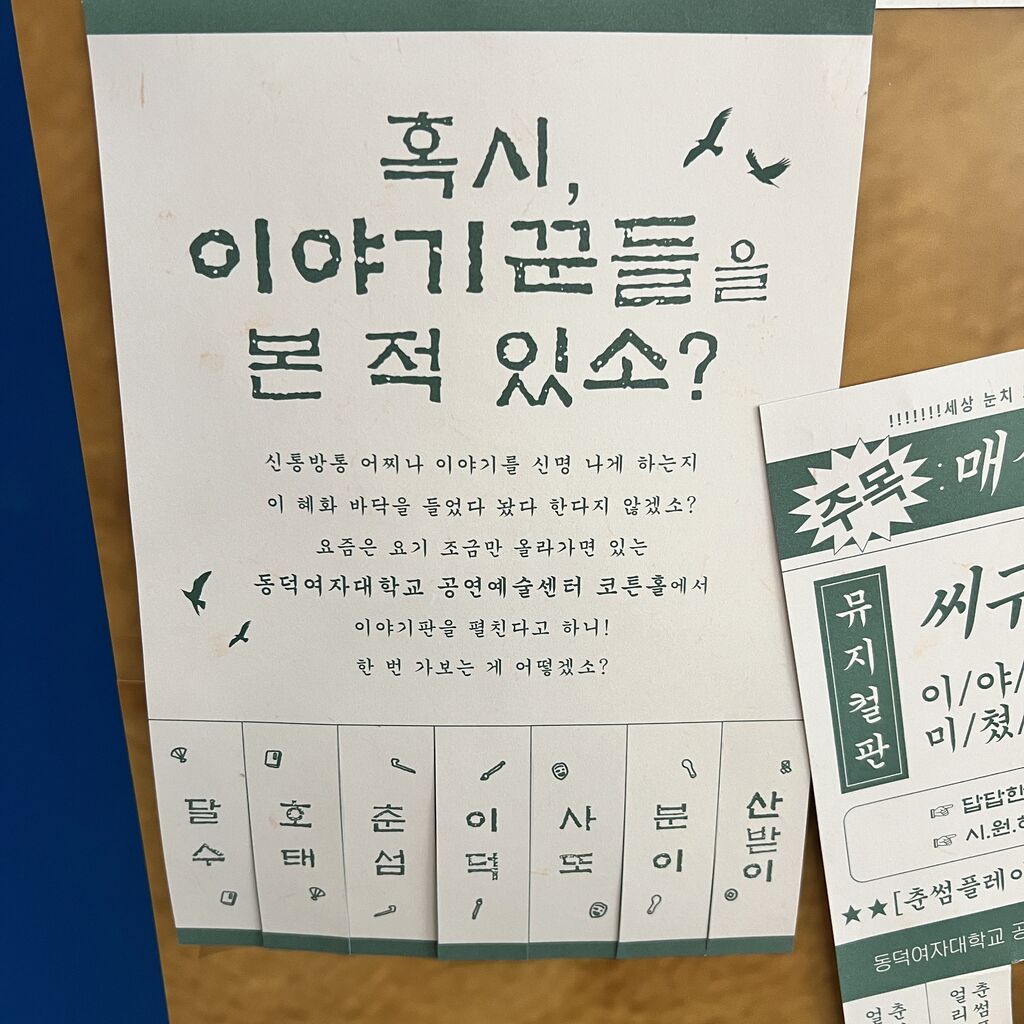 혹시,
이야기꾼들을
본 적 있소?
신통방통 어찌나 이야기를 신명 나게 하는지
이 혜화 바닥을 들었다 놨다 한다지 않겠소?
요즘은 요기 조금만 올라가면 있는
동덕여자대학교 공연예술센터 코튼홀에서
이야기판을 펼친다고 하니!
한 번 가보는 게 어떻겠소?
달수
호태
춘섬
이덕
사또
분이
산받이
!!!!!!!세상 눈치
주목
: 매
뮤지컬 판
씨구
이/야/
미/쳤/
☞ 답답한
☞ 시.원.하
★★[춘썸플레이
동덕여자대학교 공
춘썸
얼
춘썸
얼리